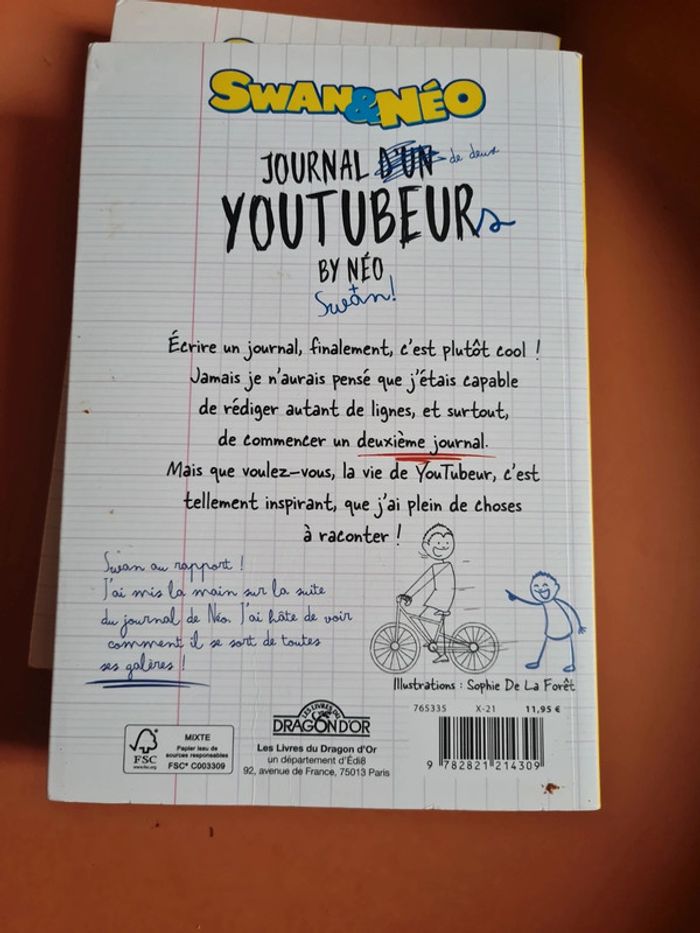 SWAN&NÉO
JOURNAL D'UN de deux
YOUTUBEURs
BY NÉO
+
Swan!
Écrire un journal, finalement, c'est plutôt cool !
Jamais je n'aurais pensé que j'étais capable
de rédiger autant de lignes, et surtout,
de commencer un deuxième journal.
Mais que voulez-vous, la vie de YouTubeur, c'est
tellement inspirant, que j'ai plein de choses
à raconter !
Swan au rapport !
J'ai mis la main sur la suite
du journal de Néo. J'ai hâte de voir
comment il se sort de toutes
ses galères !
Illustrations : Sophie De La Forêt
765335 X-21 11,95 €
FSC
www.fsc.org
MIXTE
Papier issu de
sources responsables
FSC® C003309
LES LIVRES DU
DRAGON D'OR
Les Livres du Dragon d'Or
un département d'Édi8
92, avenue de France, 75013 Paris
9 782821 214309